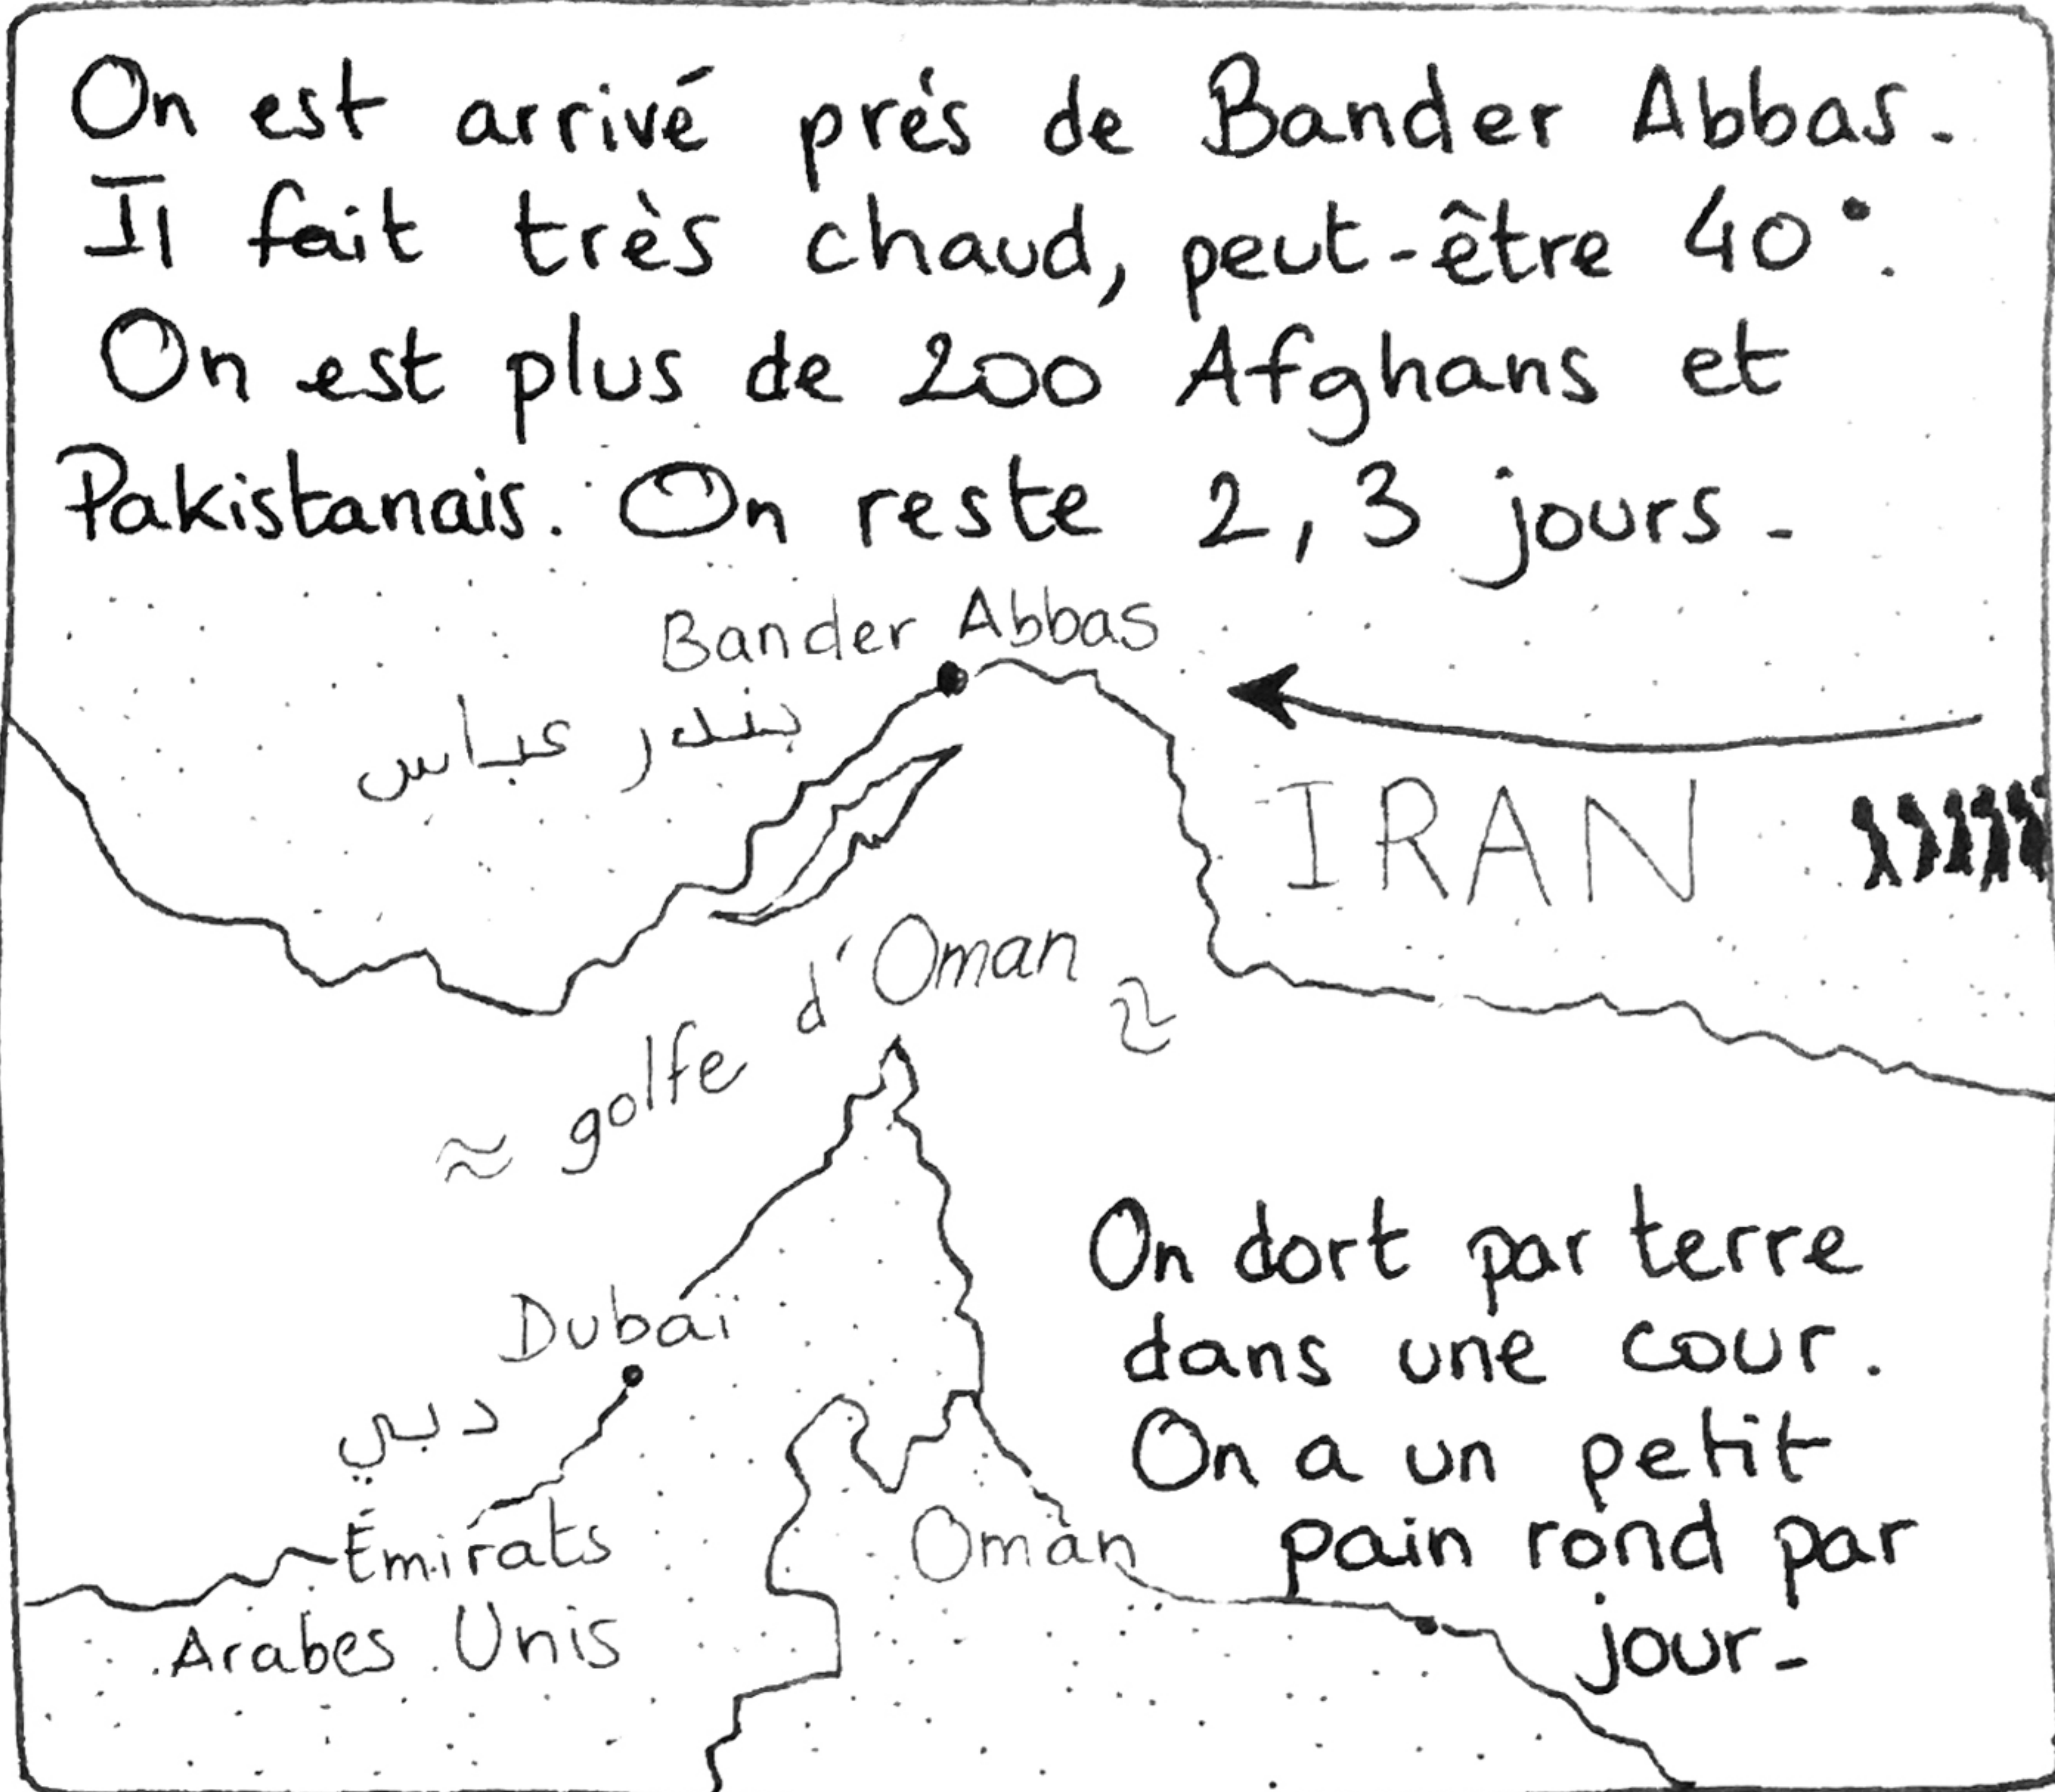 On est arrivé prés de Bander Abbas.
Il fait très chaud, peut-être 40°.
On est plus de 200 Afghans et
Pakistanais. On reste 2, 3 jours.
Bander Abbas
بندر عباس
IRAN
golfe d'Oman
Dubaï
دبي
Émirats
Arabes Unis
Oman
On dort par terre
dans une cour.
On a un petit
pain rond par
jour.